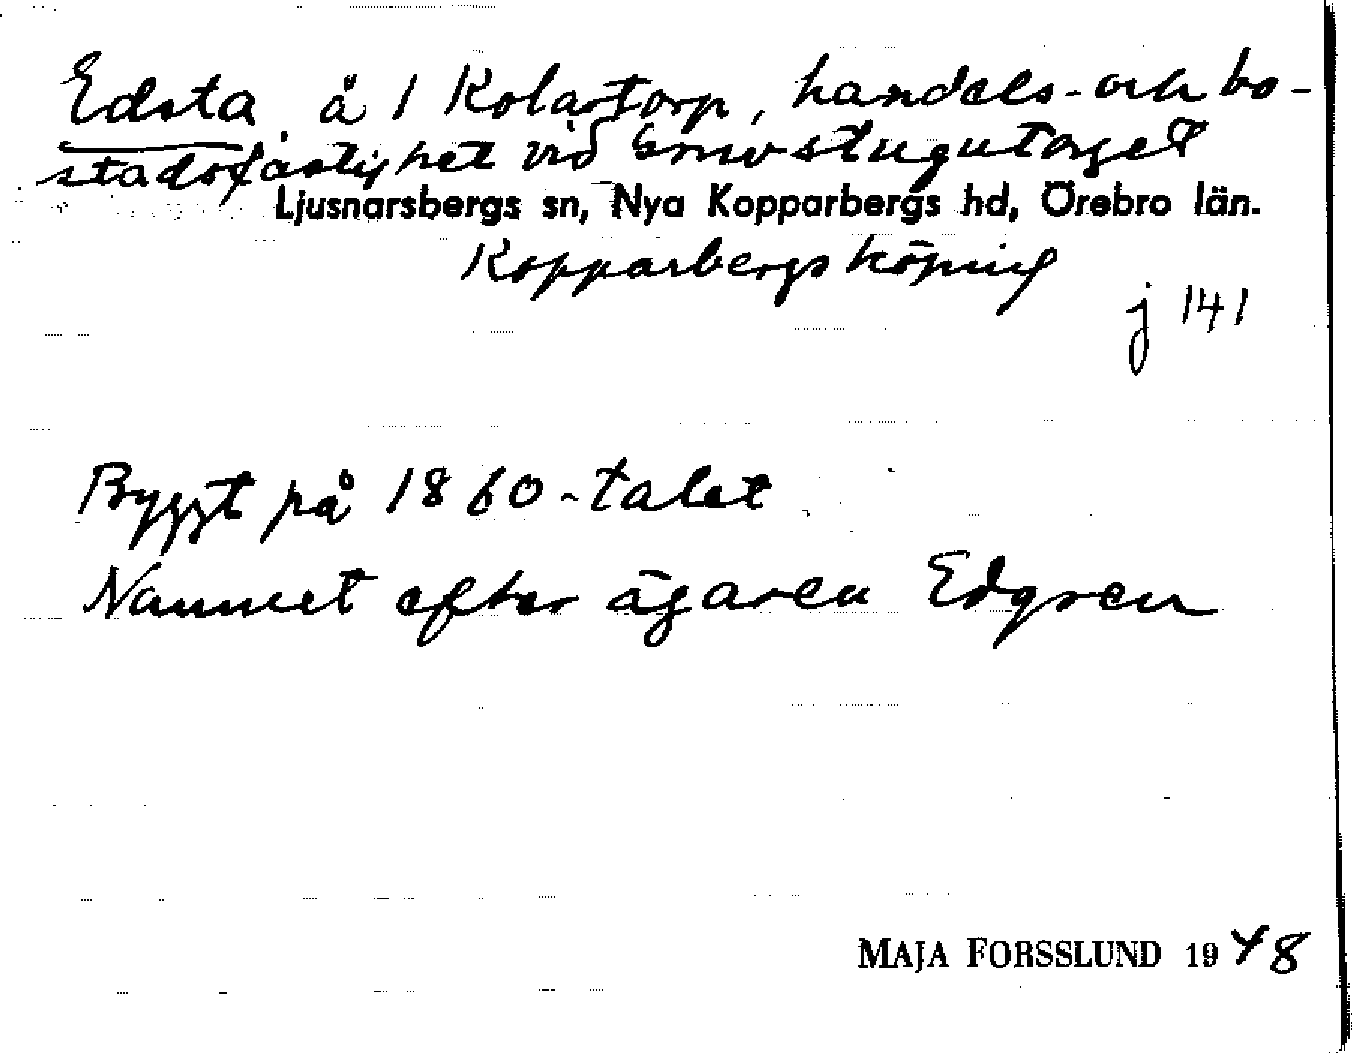 Edsta å 1 Kolartorp, handels- och bo-
stadsfastighet vid Gruvstugutorget
Ljusnarsbergs sn, Nya Kopparbergs hd, Örebro län.
Kopparbergs köping
j 141
Byggt på 1860-talet
Namnet efter ägaren Edgren
MAJA FORSSLUND 1948